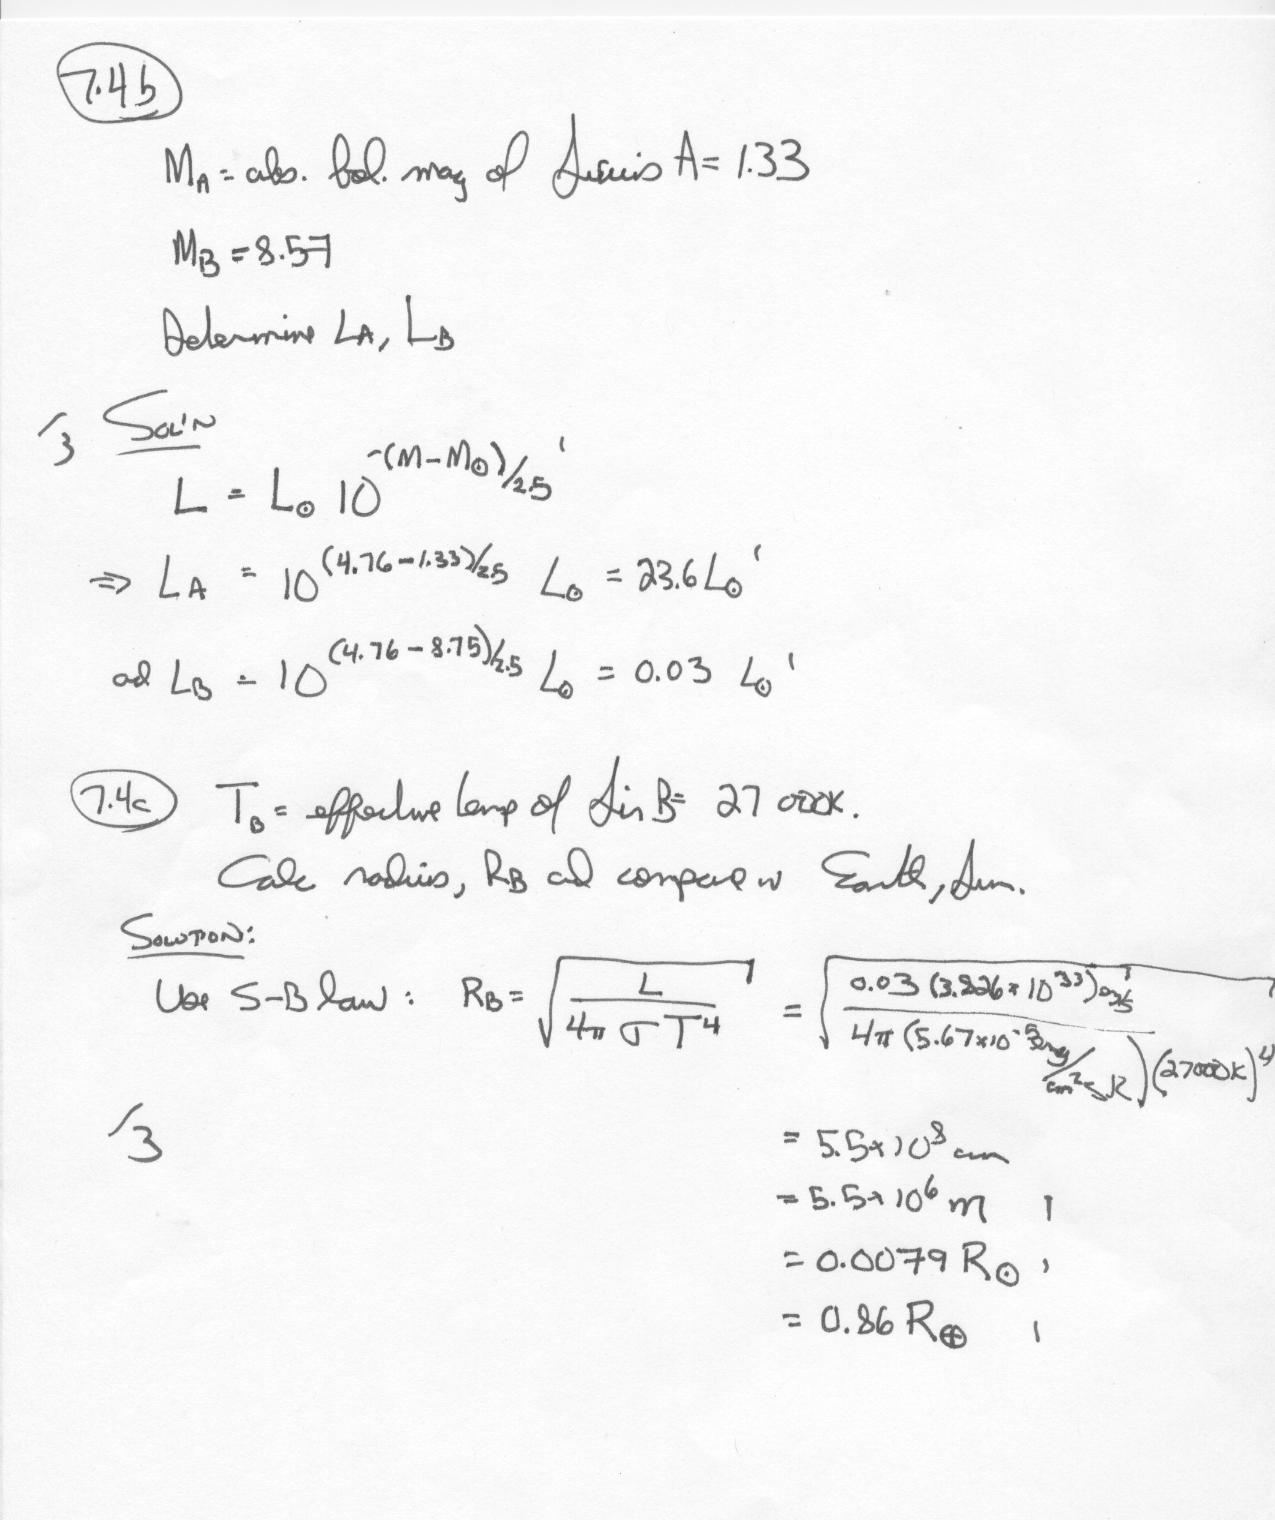 7.4b
M_A = abs. bol. mag of Sirius A = 1.33
M_B = 8.57
Determine L_A, L_B
/3 SOL'N
L = L_⊙ 10^{-(M-M_⊙)/2.5} ′
⇒ L_A = 10^{(4.76-1.33)/2.5} L_⊙ = 23.6 L_⊙ ′
ad L_B = 10^{(4.76-8.75)/2.5} L_⊙ = 0.03 L_⊙ ′
7.4c T_B = effective temp of Sir B = 27 000K.
Calc radius, R_B ad compare w Earth, Sun.
SOLUTION:
Use S-B law : R_B = √(L / 4π σ T^4) = √(0.03 (3.826×10^33) erg/s / 4π (5.67×10^-5 erg/cm^2 s K) (27000K)^4)
/3
= 5.5×10^8 cm
= 5.5×10^6 m ′
= 0.0079 R_⊙ ′
= 0.86 R_⊕ ′